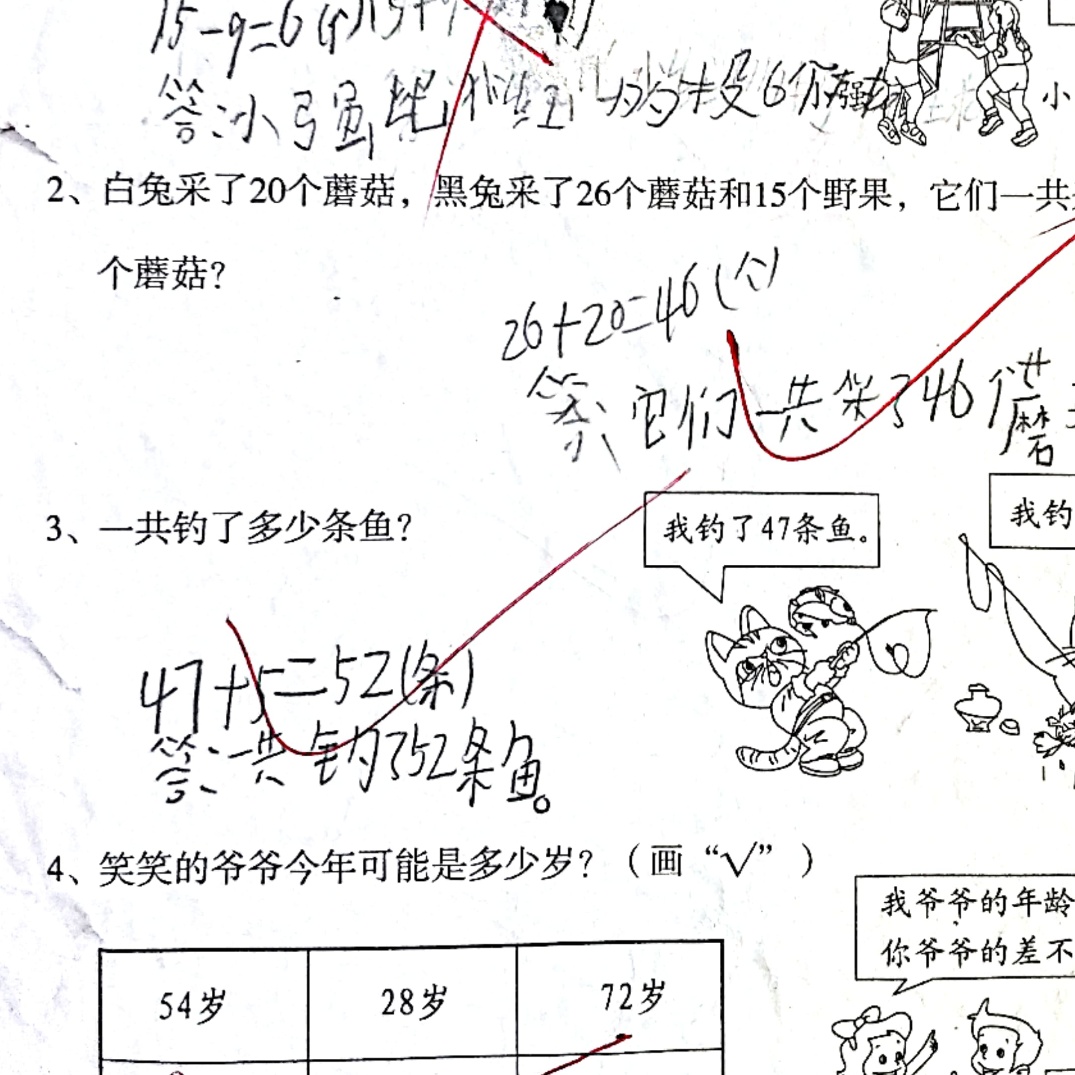 15-9=6(个)15+9
答:小强
6个
小
2、白兔采了20个蘑菇，黑兔采了26个蘑菇和15个野果，它们一共
个蘑菇？
26+20=46(个)
答:它们一共采了46个蘑
3、一共钓了多少条鱼？
我钓了47条鱼。
我钓
47+5=52(条)
答:一共钓了52条鱼。
4、笑笑的爷爷今年可能是多少岁？（画“√”）
我爷爷的年龄
你爷爷的差不
54岁 28岁 72岁